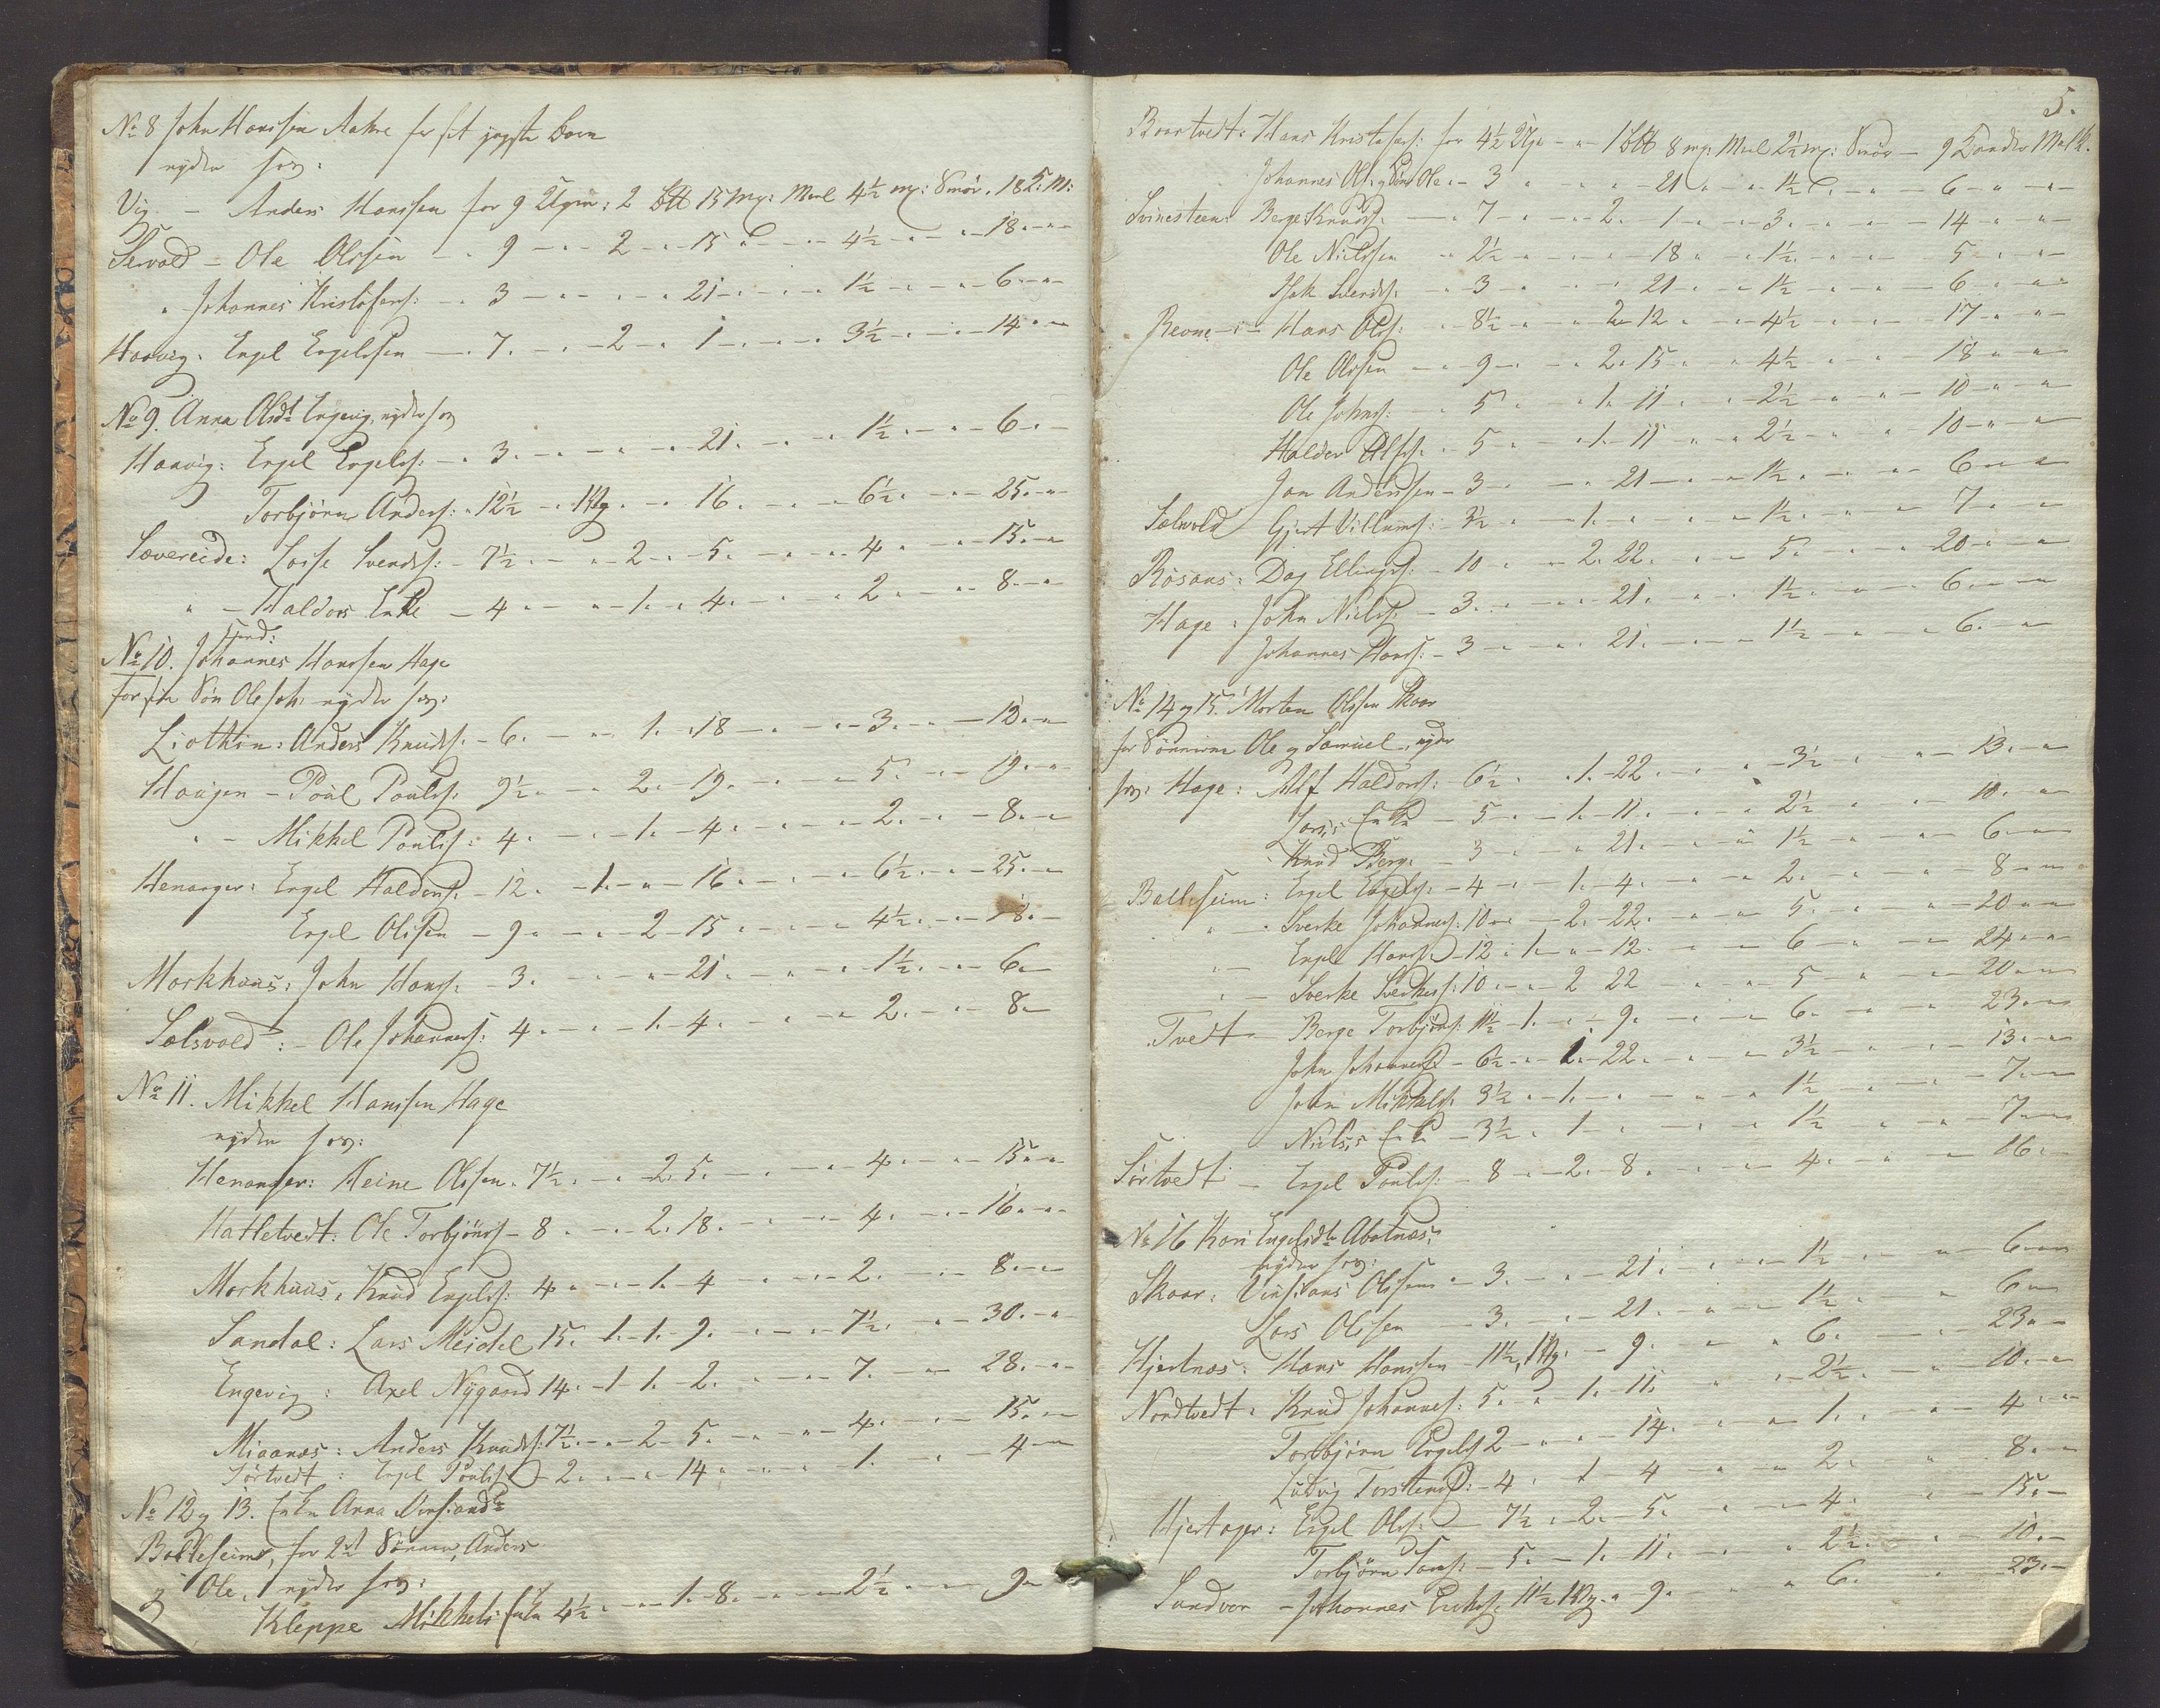 No 8 John Hansen Aakre for sit yngste Barn
nyder hos:
Vig - Anders Hanssen for 9 Uger: 2 btt 15 mg: Meel 4½ mg: Smør. 18 P: M:
Sævold - Ole Olssen - 9 - - 2 - 15 - - 4½ - - 18 - -
" Johannes Kristofers: - 3 - - - 21 - - 1½ - - 6 - -
Haavig: Engel Engelssen - 7 - - 2 - 1 - - 3½ - - 14 - -
No 9. Anna Olsdt Engevig, nyder hos
Haavig: Engel Engels: - 3 - - - 21 - - 1½ - - 6 - -
Torbjørn Anders: - 12½ - 1 Vg - - 16 - - 6½ - - 25 - -
Sævereide: Loise Svends: - 7½ - - 2 - 5 - - 4 - - 15 - -
" - Haldors Enke - 4 - - 1 - 4 - - 2 - - 8 - -
No 10. Johannes Hanssen Hage
for sin Søn Ole Joh: nyder hos:
Liothin: Anders Knuds: - 6 - - 1 - 18 - - 3 - - 12 - -
Haugen - Poul Pouls: 9½ - - 2 - 19 - - 5 - - 19 - -
" - Mikkel Pouls: 4 - - 1 - 4 - - 2 - - 8 - -
Henanger: Engel Haldors: - 12 - 1 - - 16 - - 6½ - - 25 - -
Engel Olssen - 9 - - 2 - 15 - - 4½ - - 18 -
Morkhuus: John Hans: - 3 - - - 21 - - 1½ - - 6 -
Sælsvold: - Ole Johannes: 4 - - 1 - 4 - - 2 - - 8 -
No 11. Mikkel Hanssen Hage
nyder hos:
Henanger: Heine Olssen. 7½ - - 2 - 5 - - 4 - - 15 - -
Hatletvedt: Ole Torbjørns - 8 - - 2 - 18 - - 4 - - 16 - -
Morkhuus: Knud Engels: 4 - - 1 - 4 - - 2 - - 8 - -
Sandal: Lars Meidel 15 - 1 - 1 - 9 - - 7½ - - 30 - -
Engevig: Axel Nygaard 14 - 1 - 1 - 2 - - 7 - - 28 - -
Miaanæs: Anders Knuds: 7½ - - 2 - 5 - - 4 - - 15 - -
Sørtvedt: Engel Pouls: - 2 - - - 14 - - 1 - - 4 - -
No 12 og 13. Enken Anna
Bolleseim, for 2de Sønner Anders
og Ole, nyder hos:
Kleppe Mikkels Enke 4½ - - 1 - 8 - - 2½ - - 9 -
5.
Baartvedt: Hans Kristofers: for 4½ Uger - - 1 btt 8 mg: Meel 2½ mg: Smør - 9 Melk.
Johannes Ols: og Søn Ole - 3 - - - 21 - - 1½ - - 6 - -
Svinesteen: Berge Knuds: - 7 - - 2 - 1 - - 3 - - 14 - -
Ole Nielssen - 2½ - - - 18 - - 1½ - - 5 - -
Isak Svends: - 3 - - - 21 - - 1½ - - 6 - -
Revne - Hans Ols: - 8½ - - 2 - 12 - - 4½ - - 17 - -
Ole Olssen - 9 - - 2 - 15 - - 4½ - - 18 - -
Ole Johns: - 5 - - 1 - 11 - - 2½ - - 10 - -
Haldor Alfs: - 5 - - 1 - 11 - - 2½ - - 10 - -
Jon Anderssen - 3 - - - 21 - - 1½ - - 6 - -
Sælvold Gjert Villums: - 3½ - - 1 - - - 1½ - - 7 - -
Røsaas: Dag Ellings: - 10 - - 2 - 22 - - 5 - - 20 - -
Hage: John Niels: - 3 - - - 21 - - 1½ - - 6 - -
Johannes Hans: - 3 - - - 21 - - 1½ - - 6 - -
No 14 og 15. Morten Olssen Skaar
for Sønnerne Ole og Samuel, nyder
hos: Hage: Alf Haldors: 6½ - - 1 - 22 - - 3½ - - 13 - -
Larsis Enke - 5 - - 1 - 11 - - 2½ - - 10 - -
Knud Berge - 3 - - - 21 - - 1½ - - 6 - -
Balleseim: Engel Engels: - 4 - - 1 - 4 - - 2 - - 8 - -
" - Sverke Johannes: 10 - - 2 - 22 - - 5 - - 20 - -
" - Engel Hans: - 12 - 1 - - 12 - - 6 - - 24 - -
" - Sverke Sverkes: 10 - - 2 22 - - 5 - - 20 - -
Tvedt - Berge Torbjørns: 11½ - 1 - - 9 - - 6 - - 23 - -
John Johannes: - 6½ - - 1 - 22 - - 3½ - - 13 - -
John Mikkels: 3½ - - 1 - - - 1½ - - 7 - -
Nielsis Enke - 3½ - - 1 - - - 1½ - - 7 - -
Sørtvedt - Engel Pouls: - 8 - - 2 - 8 - - 4 - - 16 - -
No 16 Kari Engelsdt Abotnæs,
nyder hos:
Skaar: Olssen - 3 - - - 21 - - 1½ - - 6 - -
Lars Olssen - 3 - - - 21 - - 1½ - - 6 - -
Hjertnæs: Hans Hanssen - 11½, 1 Vg - 9 - - 6 - - 23 - -
Nordtvedt: Knud Johannes: 5 - - 1 - 11 - - 2½ - - 10 - -
Torbjørn Engels: 2 - - - 14 - - 1 - - 4 - -
Ludvig Torstens: - 4 - - 1 - 4 - - 2 - - 8 - -
Hjertager: Engel Ols: - 7½ - - 2 - 5 - - 4 - - 15 - -
Torbjørn Tors: - 5 - - 1 - 11 - - 2½ - - 10 - -
Sundvor - Johannes Eriks: 11½ 1 Vg - 9 - - 6 - - 23 - -